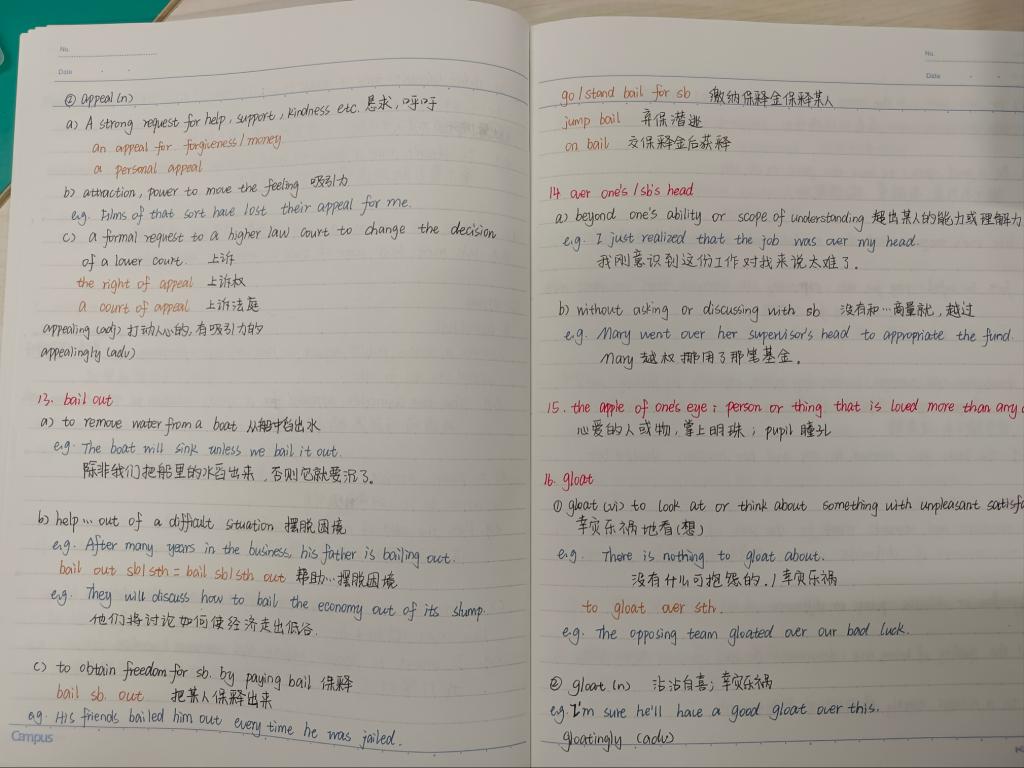 No.
Date
② appeal (n)
a) A strong request for help, support, kindness etc. 恳求, 呼吁
an appeal for forgiveness / money
a personal appeal
b) attraction, power to move the feeling 吸引力
e.g. Films of that sort have lost their appeal for me.
c) a formal request to a higher law court to change the decision
of a lower court. 上诉
the right of appeal 上诉权
a court of appeal 上诉法庭
appealing (adj) 打动人心的, 有吸引力的
appealingly (adv)
13. bail out
a) to remove water from a boat 从船中舀出水
e.g. The boat will sink unless we bail it out.
除非我们把船里的水舀出来, 否则它就要沉了。
b) help … out of a difficult situation 摆脱困境
e.g. After many years in the business, his father is bailing out.
bail out sb/sth = bail sb/sth out 帮助…摆脱困境
e.g. They will discuss how to bail the economy out of its slump.
他们将讨论如何使经济走出低谷.
c) to obtain freedom for sb. by paying bail 保释
bail sb. out 把某人保释出来
e.g. His friends bailed him out every time he was jailed.
Campus
No.
Date
go / stand bail for sb 缴纳保释金保释某人
jump bail 弃保潜逃
on bail 交保释金后获释
14. over one's / sb's head
a) beyond one's ability or scope of understanding 超出某人的能力或理解力
e.g. I just realized that the job was over my head.
我刚意识到这份工作对我来说太难了.
b) without asking or discussing with sb 没有和…商量就, 越过
e.g. Mary went over her supervisor's head to appropriate the fund.
Mary 越权挪用了那笔基金.
15. the apple of one's eye : person or thing that is loved more than any
心爱的人或物, 掌上明珠 ; pupil 瞳孔
16. gloat
① gloat (vi) to look at or think about something with unpleasant
幸灾乐祸地看(想)
e.g. There is nothing to gloat about.
没有什么可抱怨的. / 幸灾乐祸
to gloat over sth.
e.g. The opposing team gloated over our bad luck.
② gloat (n) 沾沾自喜; 幸灾乐祸
e.g. I'm sure he'll have a good gloat over this.
gloatingly (adv)